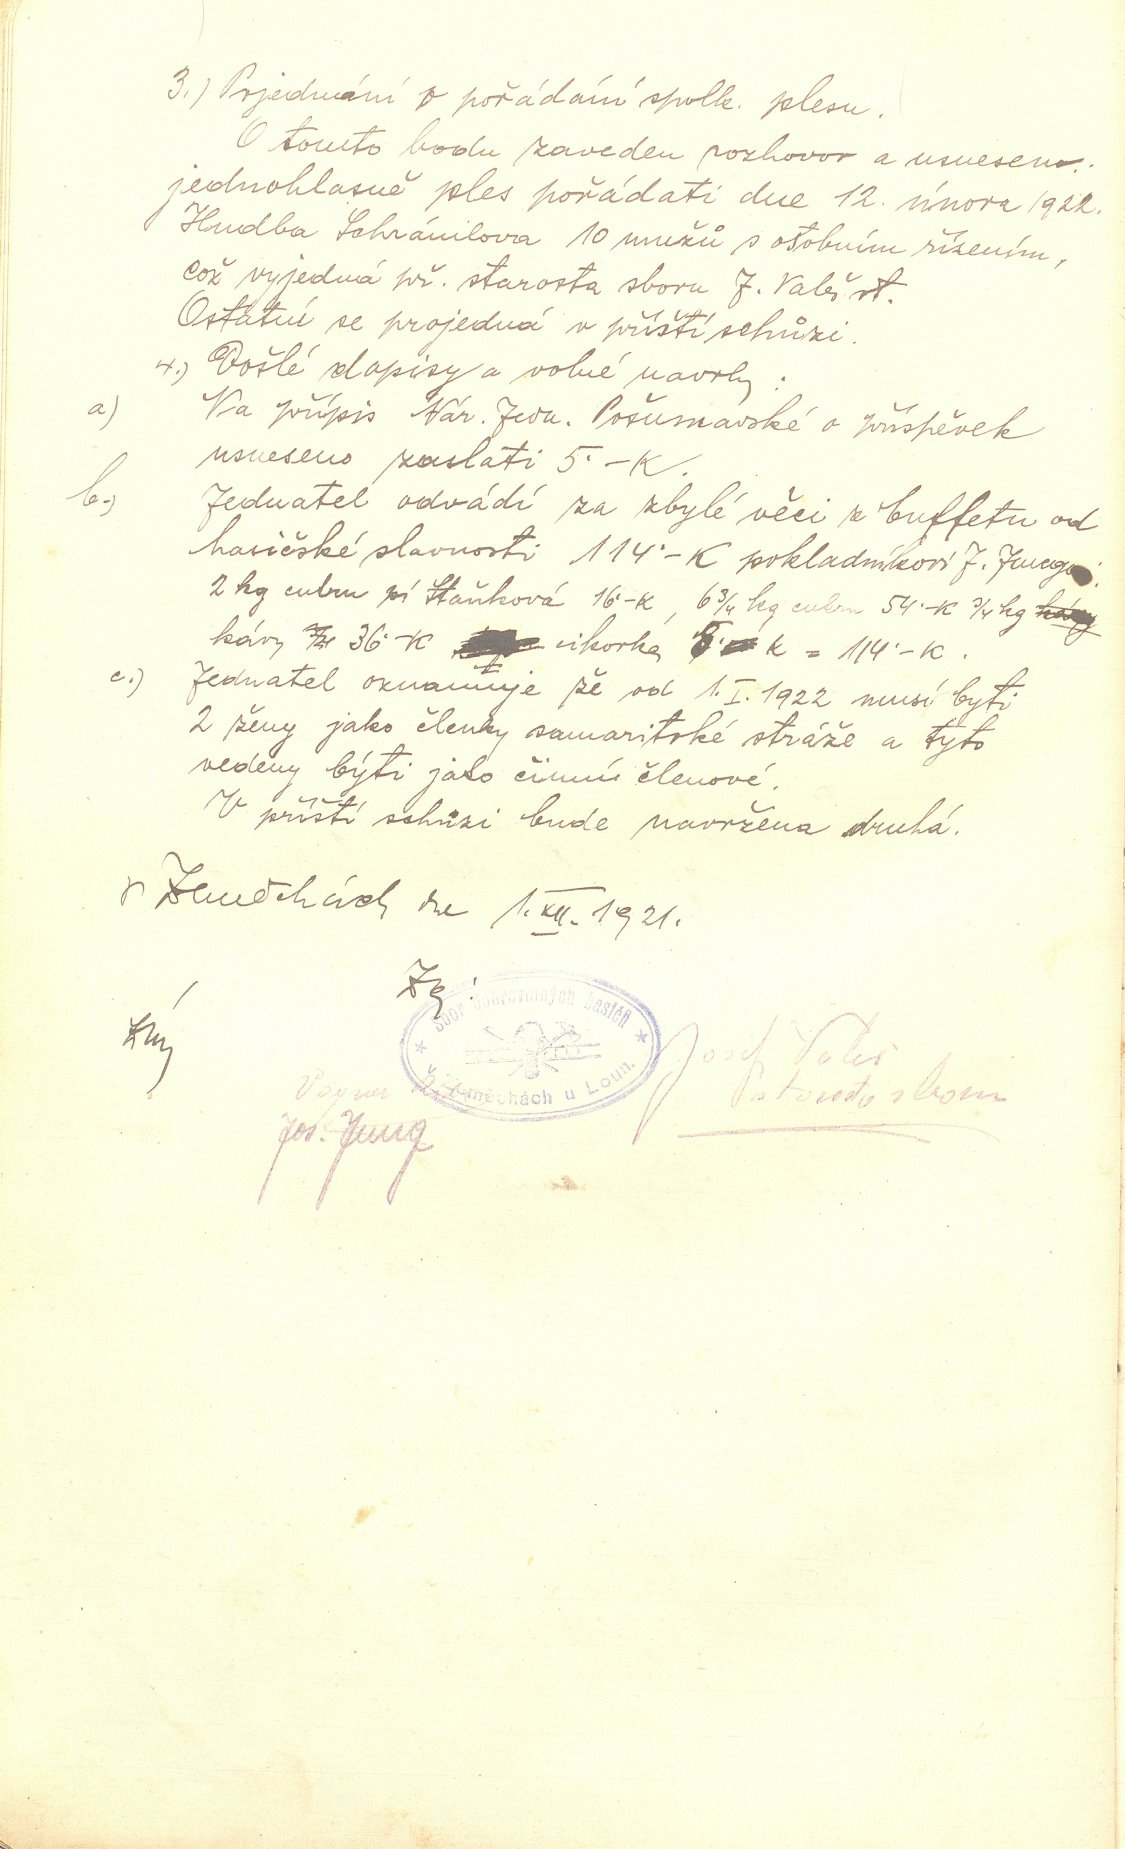 3.) Projednání o pořádání spolk. plesu.
O tomto bodu zaveden rozhovor a usneseno
jednohlasně ples pořádati dne 12. února 1922.
Hudba Schránilova 10 mužů s osobním řízením,
což vyjedná př. starosta sboru J. Valeš st.
Ostatní se projedná v příští schůzi.
4.) Došlé dopisy a volné navrhy :
a) Na přípis Nár. Jedn. Pošumavské o příspěvek
usneseno zaslati 5·-K.
b.) Jednatel odvádí za zbylé věci z buffetu od
hasičské slavnosti 114·-K pokladníkovi J. Jungovi.
2 kg cukru pí Staňková 16·-K, 6 3/4 kg cukru 54·-K 3/4 kg
kávy 36·-K cikorka K = 114·-K.
c.) Jednatel oznamuje že od 1. I. 1922 musí byti
2 ženy jako členky samaritské stráže a tyto
vedeny býti jako činní členové.
V příští schůzi bude navržena druhá.
V Zeměchách dne 1. XII. 1921.
Sbor dobrovolných hasičů
v Zeměchách u Loun.
Josef Valeš
starosta sboru
Jos. Jung